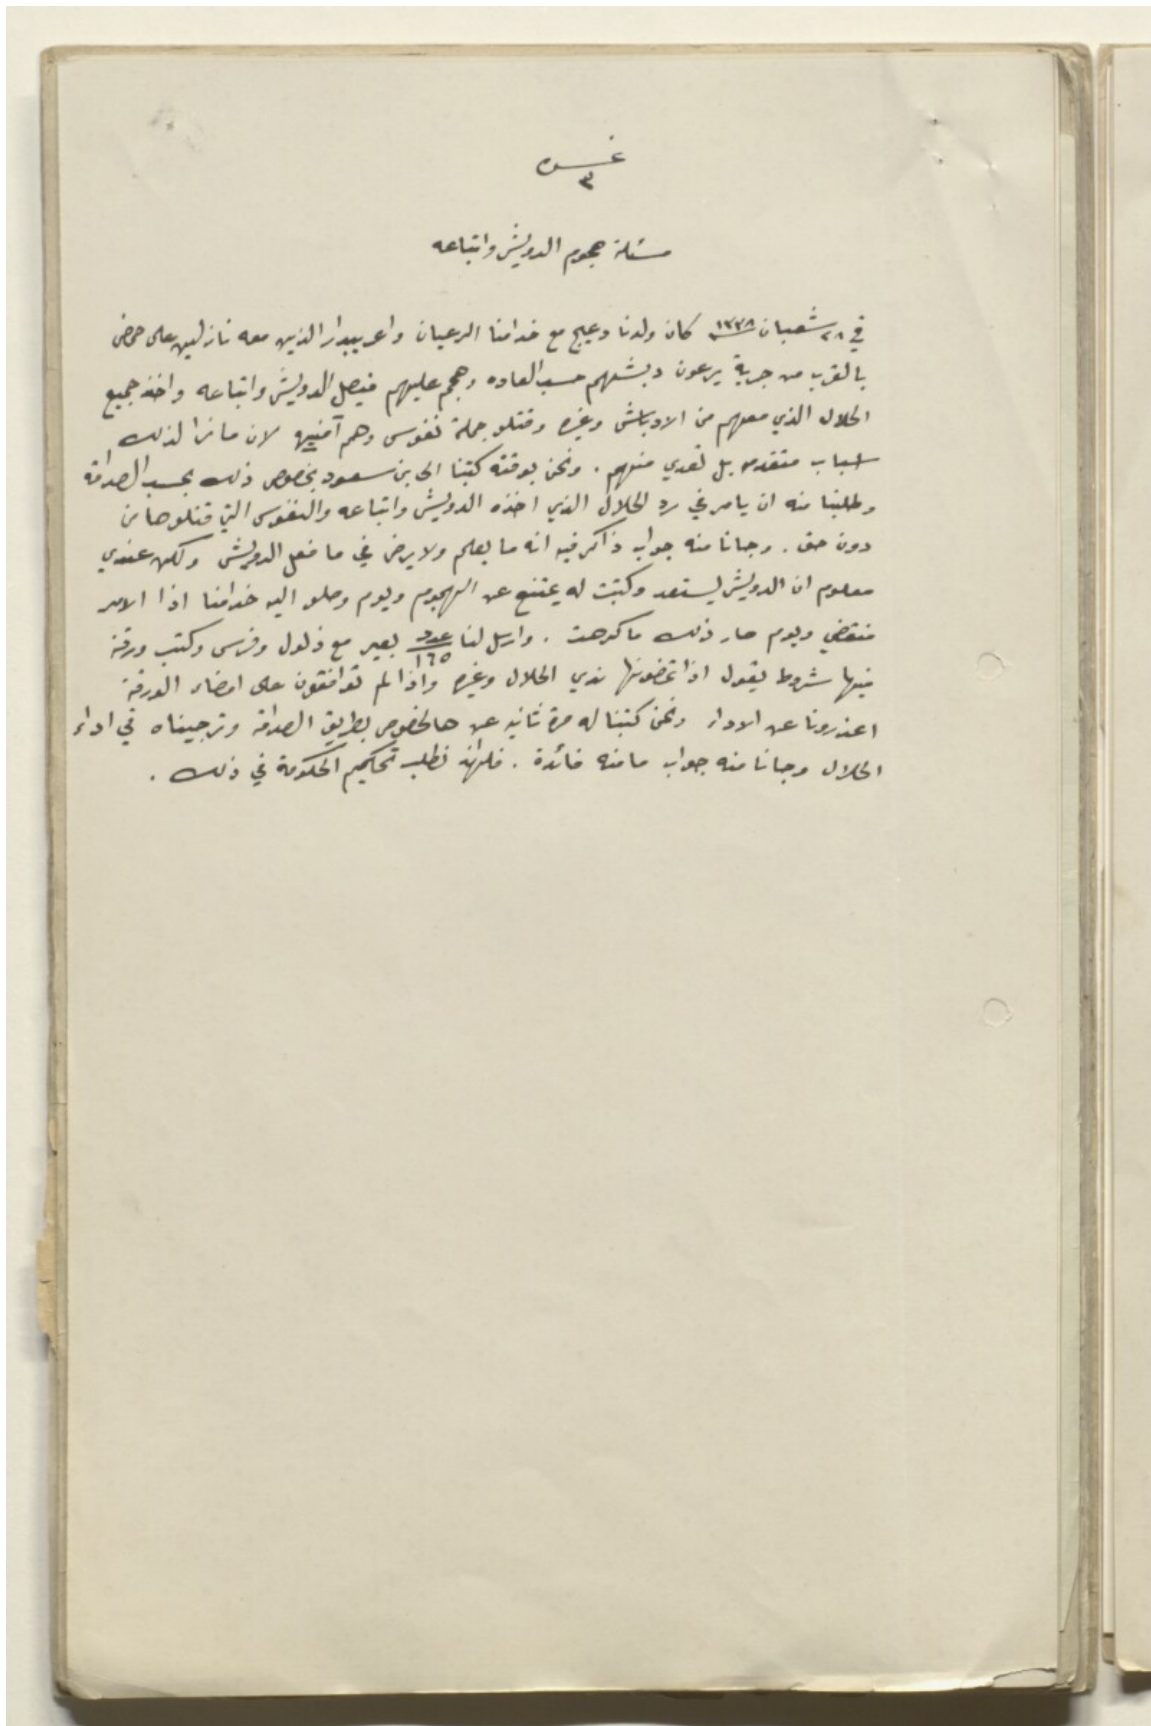 نمـــره
٣
مسئلة هجوم الدويش واتباعه
في ٢٨ شعبان ١٣٣٨ كان ولدنا دعيج مع خدامنا الرعيان واعريبدار الذين معه نازلين على حمض
بالقرب من جرية يرعون دبشهم حسب العاده وهجم عليهم فيصل الدويش واتباعه واخذ جميع
الحلال الذي معهم من الادباش وغيره وقتلو جملة نفوس وهم آمنين لان مانرا لذلك
اسباب متقدمه بل تعدي منهم . ونحن بوقته كتبنا الى بن سعود بخصوص ذلك بحسب الصداقة
وطلبنا منه ان يامر في رد الحلال الذي اخذه الدويش واتباعه والنفوس التي قتلوها من
دون حق . وجانا منه جواب ذاكر فيه انه ما يعلم ولا يرضى في ما فعل الدويش ولكن عندي
معلوم ان الدويش ليستعد وكتبت له يمتنع عن الهجوم ويوم وصلو اليه خدامنا اذا الامر
منقضي ويوم صار ذلك ماكرهت . وارسل لنا عدد ١٦٥ بعير مع ذلول وفرس وكتب ورقة
فيها شروط يقول اذا تمضونها ندي الحلال وغيره واذا لم توافقون على امضاء الورقة
اعذرونا عن الاداء ونحن كتبنا له مرة ثانيه عن هالخصوص بطريق الصداقة وترجيناه في اداء
الحلال وجانا منه جواب مامنه فائدة . فلهذا نطلب تحكيم الحكومة في ذلك .